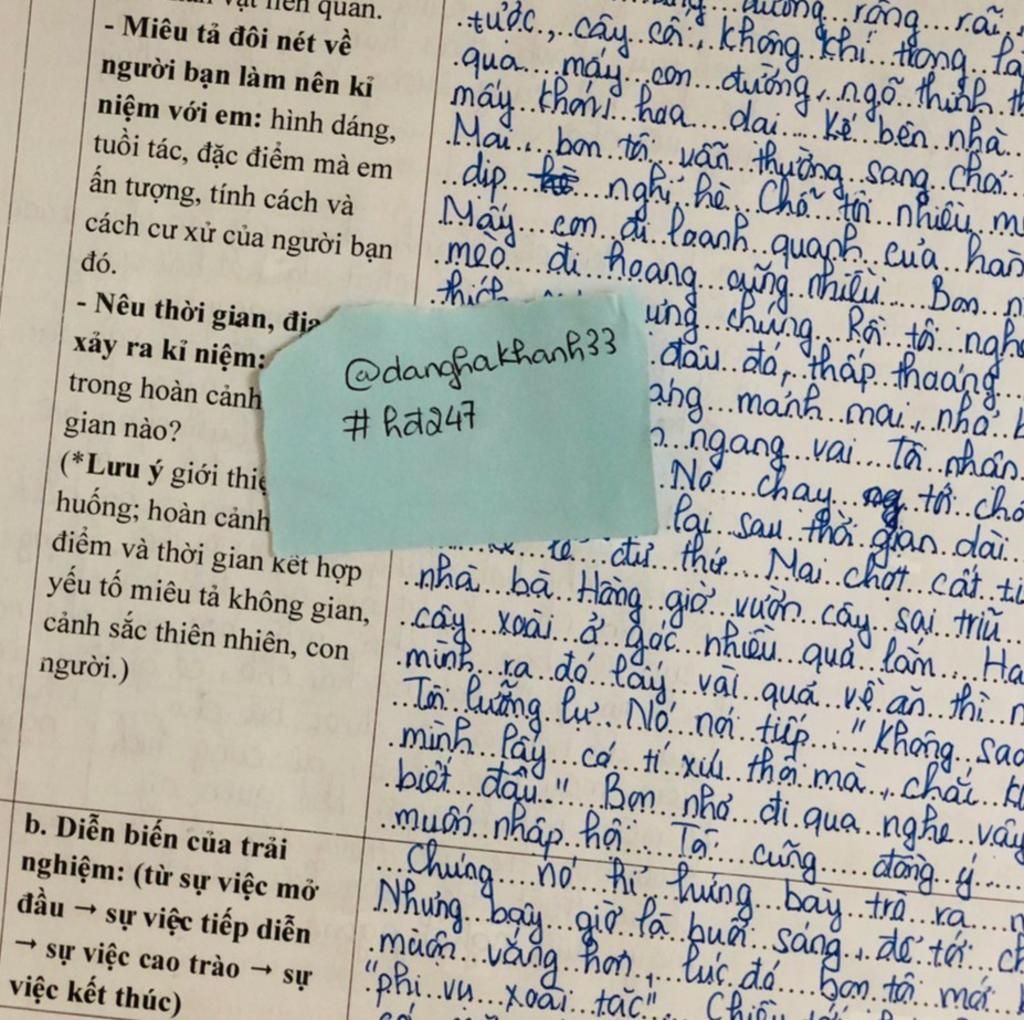 liên quan.
- Miêu tả đôi nét về
người bạn làm nên kỉ
niệm với em: hình dáng,
tuổi tác, đặc điểm mà em
ấn tượng, tính cách và
cách cư xử của người bạn
đó.
- Nêu thời gian, địa
xảy ra kỉ niệm:
trong hoàn cảnh
gian nào?
(*Lưu ý giới thiệ
huống; hoàn cảnh
điểm và thời gian kết hợp
yếu tố miêu tả không gian,
cảnh sắc thiên nhiên, con
người.)
đường rộng rãi,
tước, cây cối, không khí trong la
qua mấy con đường, ngõ thinh th
mấy khóm hoa dại. Kế bên nhà
Mai, bọn tôi vẫn thường sang chơi
dịp nghỉ hè. Chỗ tôi nhiều m
Mấy con đi loanh quanh cửa hàn
mèo đi hoang cũng nhiều. Bọn n
thích ưng chúng. Rồi tôi ngh
đâu đó, thấp thoáng
ang mảnh mai, nhỏ b
ngang vai. Tôi nhận
Nó chạy tới chỗ
lại sau thời gian dài
đủ thứ. Mai chợt cất ti
nhà bà Hằng giờ vườn cây sai trĩu
cây xoài ở góc nhiều quả lắm. Ha
mình ra đó lấy vài quả về ăn thì n
Tôi lưỡng lự. Nó nói tiếp: "Không sao
mình lấy có tí xíu thôi mà, chắc k
biết đâu." Bọn nhỏ đi qua nghe vậy
muốn nhập hội. Tôi cũng đồng ý.
@danghakhanh33
# hđ247
b. Diễn biến của trải
nghiệm: (từ sự việc mở
đầu → sự việc tiếp diễn
→ sự việc cao trào → sự
việc kết thúc)
Chúng nó hí hửng bày trò ra n
Nhưng bây giờ là buổi sáng, để tới ch
muộn vắng hơn, lúc đó bọn tôi mới
"phi vụ xoài tặc". Chiều